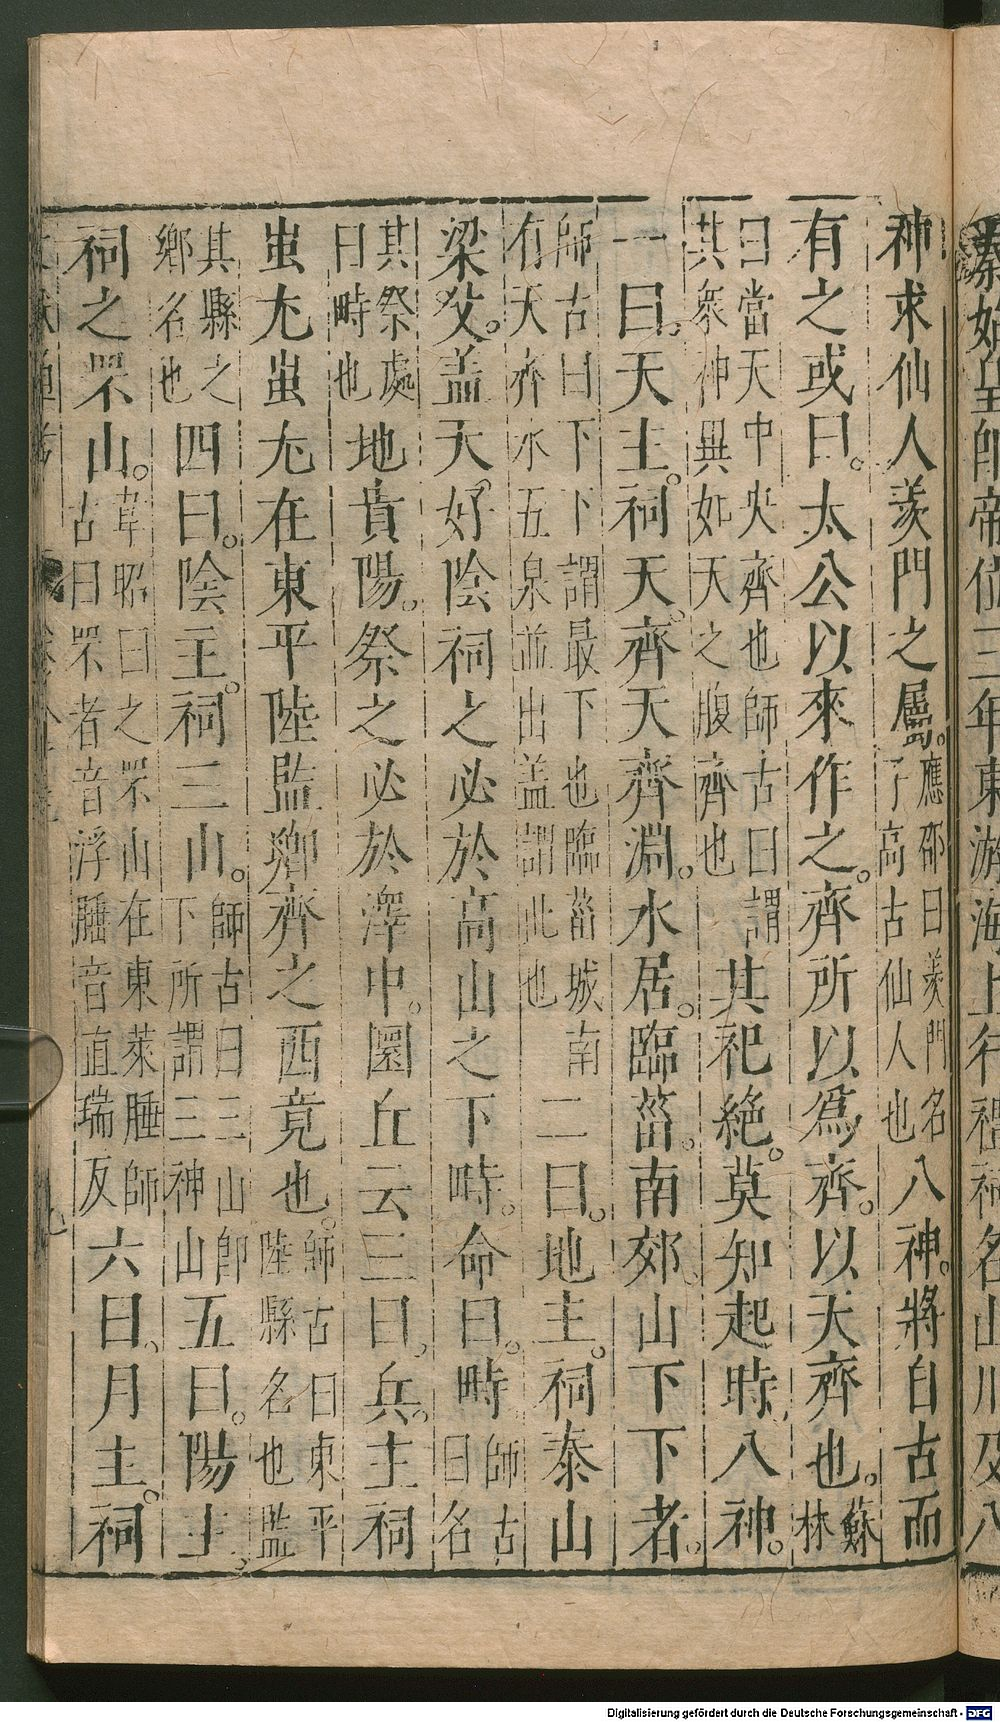 秦始皇即帝位三年東游海上行禮祠名山川及八
神求仙人羨門之屬應邵曰羨門名子高古仙人也八神將自古而
有之或曰太公以來作之齊所以爲齊以天齊也蘇林
曰當天中央齊也師古曰謂其衆神異如天之腹齊也其祀絶莫知起時八神
一曰天主祠天齊天齊淵水居臨菑南郊山下下者
師古曰下下謂最下也臨菑城南有天齊水五泉並出蓋謂此也二曰地主祠泰山
梁父蓋天好陰祠之必於高山之下畤命曰畤師古曰名
其祭處曰畤也地貴陽祭之必於澤中圜丘云三曰兵主祠
蚩尤蚩尤在東平陸監鄉齊之西竟也師古曰東平陸縣名也監
其縣之鄉名也四曰陰主祠三山師古曰三山即下所謂三神山五曰陽主
祠之罘山韋昭曰之罘山在東萊腄師古曰罘者音浮腄音直瑞反六曰月主祠
Digitalisierung gefördert durch die Deutsche Forschungsgemeinschaft - DFG